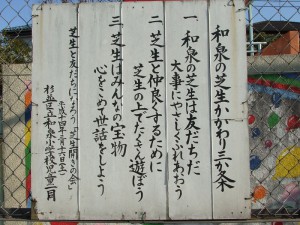 和泉の芝生かかわり三か条
一 和泉の芝生は友だちだ
大事にやさしくふれあおう
二 芝生と仲良くするために
芝生の上でたくさん遊ぼう
三 芝生はみんなの宝物
心をこめて世話をしよう
芝生と友だちになろう「芝生開きの会」
平成十四年十月二十六日(土)
杉並区立和泉小学校児童一同